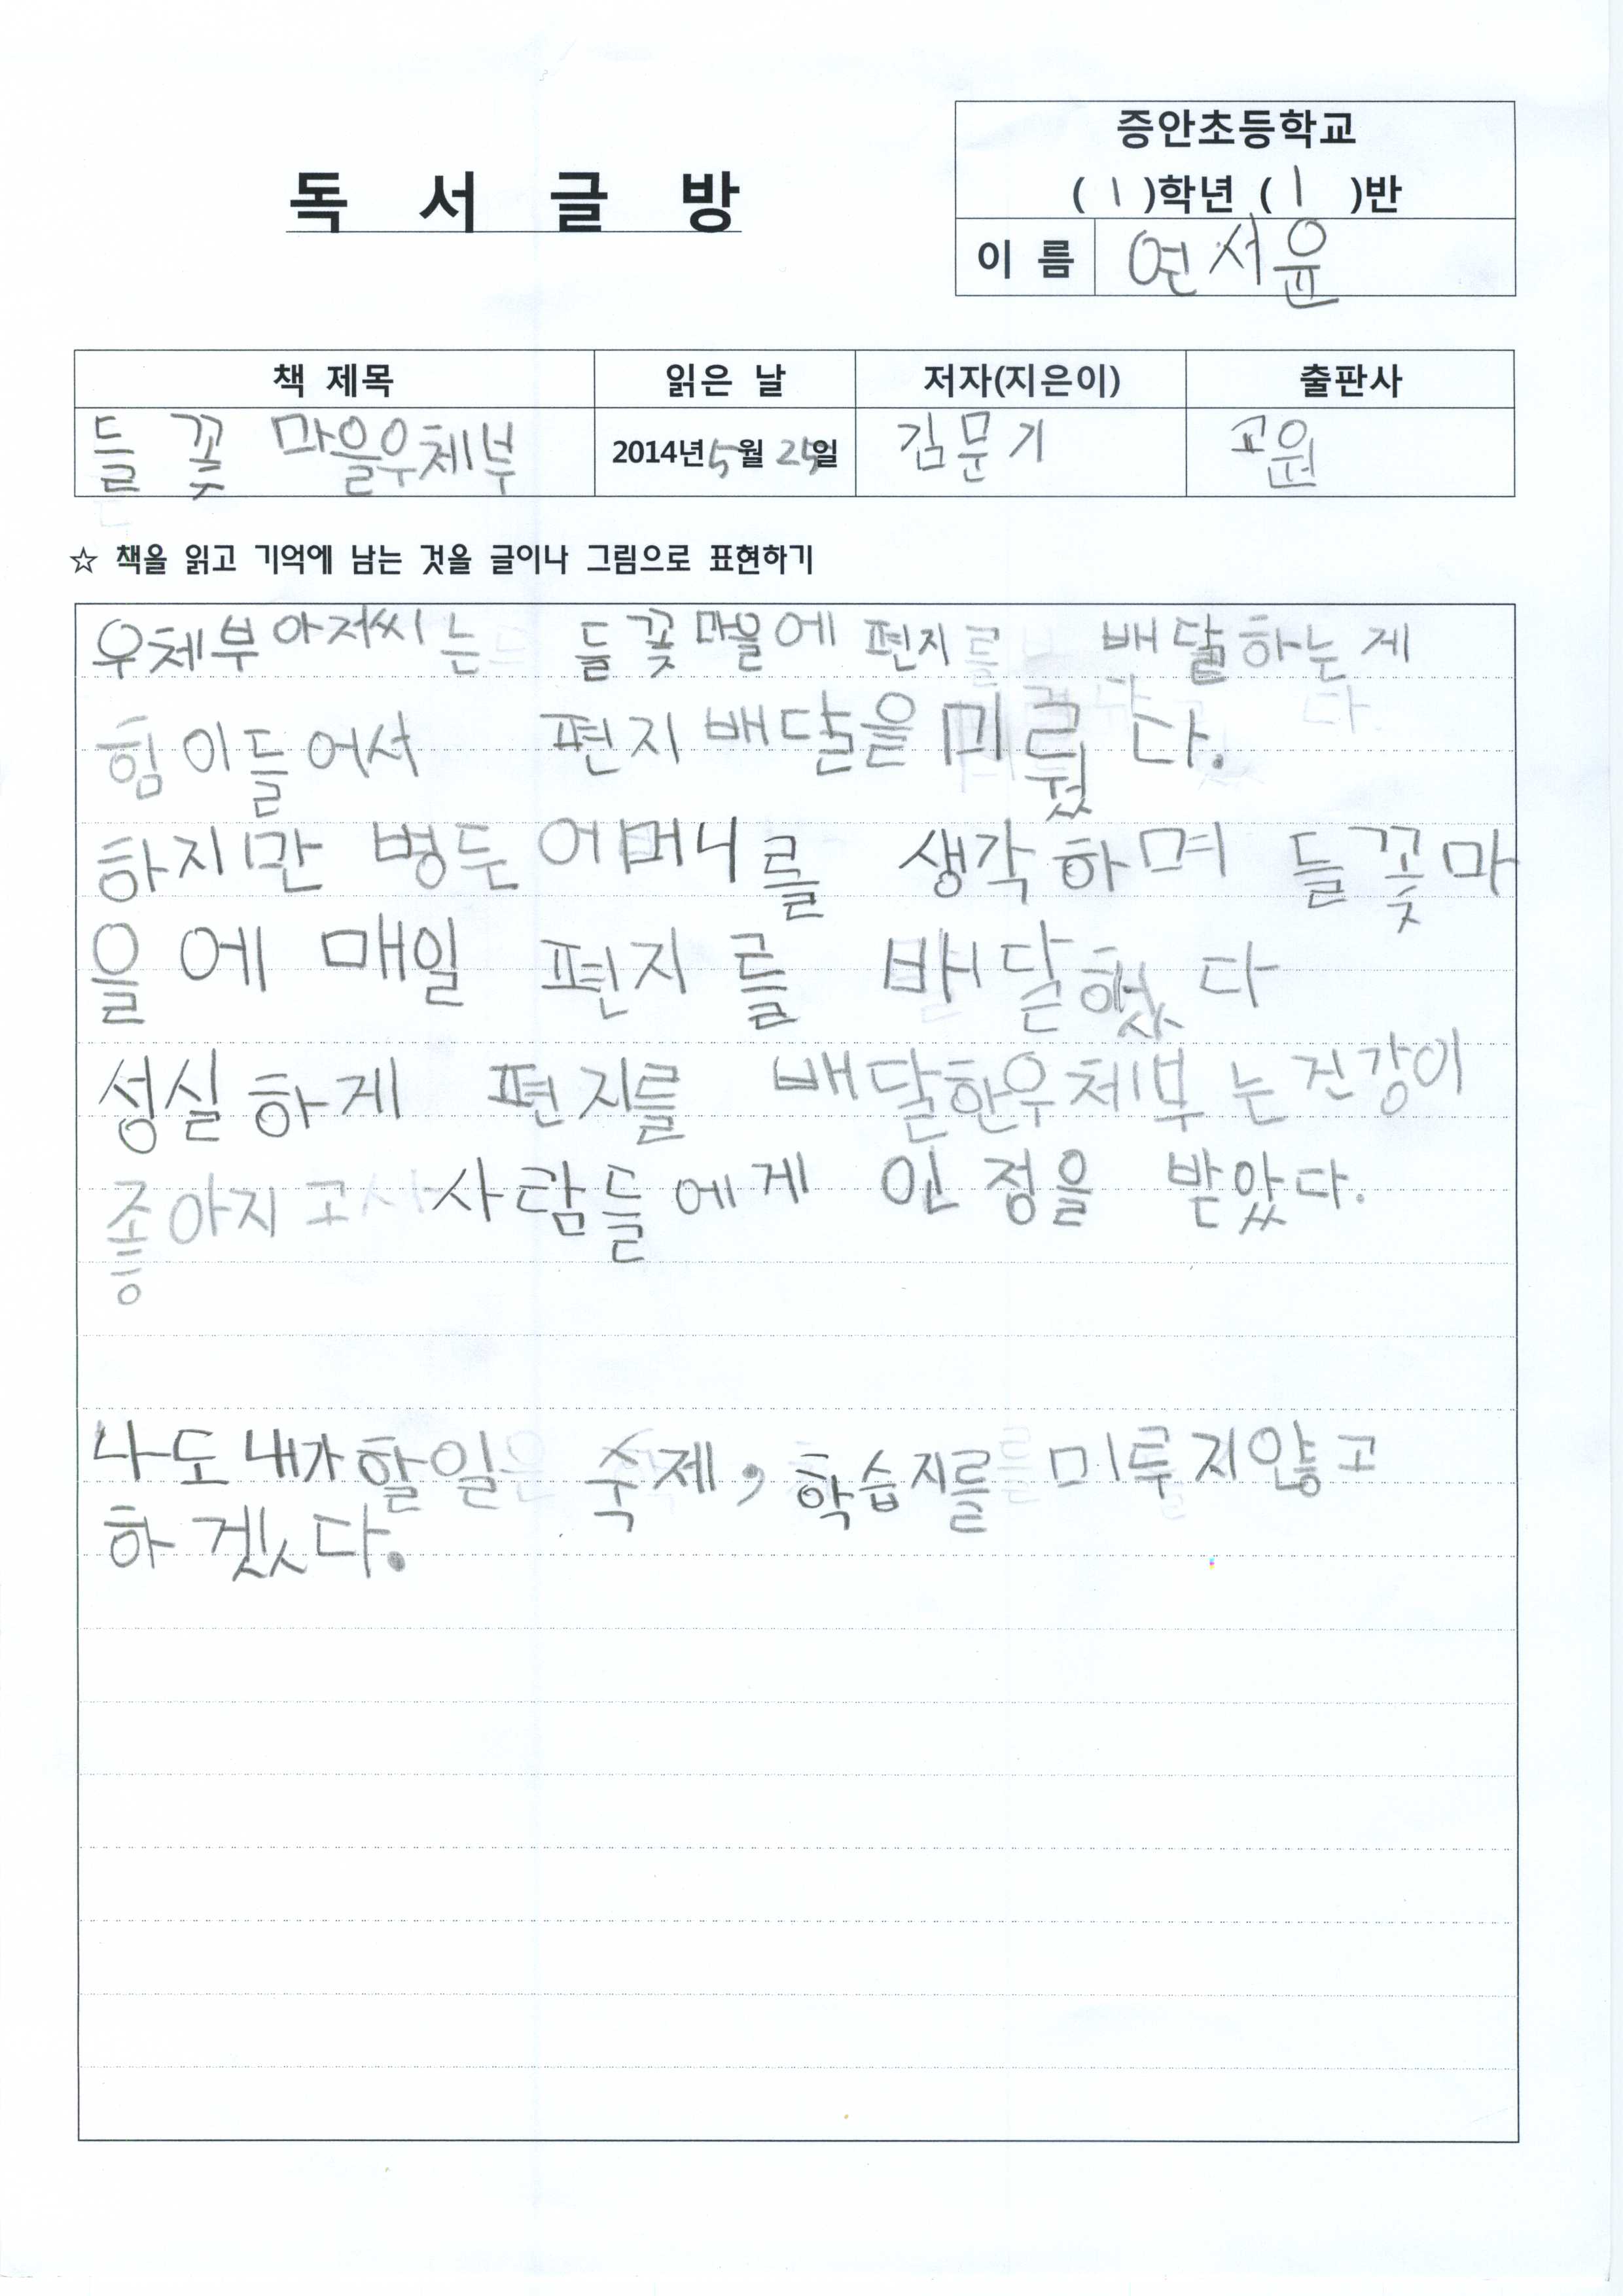 증안초등학교
독 서 글 방
( 1 )학년 ( 1 )반
이 름 연서윤
책 제목 읽은 날 저자(지은이) 출판사
들꽃 마을우체부 2014년 5월 25일 김문기 교원
☆ 책을 읽고 기억에 남는 것을 글이나 그림으로 표현하기
우체부아저씨는 들꽃마을에 편지를 배달하는게
힘이들어서 편지배달을 미뤘다.
하지만 병든어머니를 생각하며 들꽃마
을에 매일 편지를 배달했다
성실하게 편지를 배달한우체부는건강이
좋아지고 사람들에게 인정을 받았다.
나도 내가 할일 숙제, 학습지를 미루지않고
하겠다.